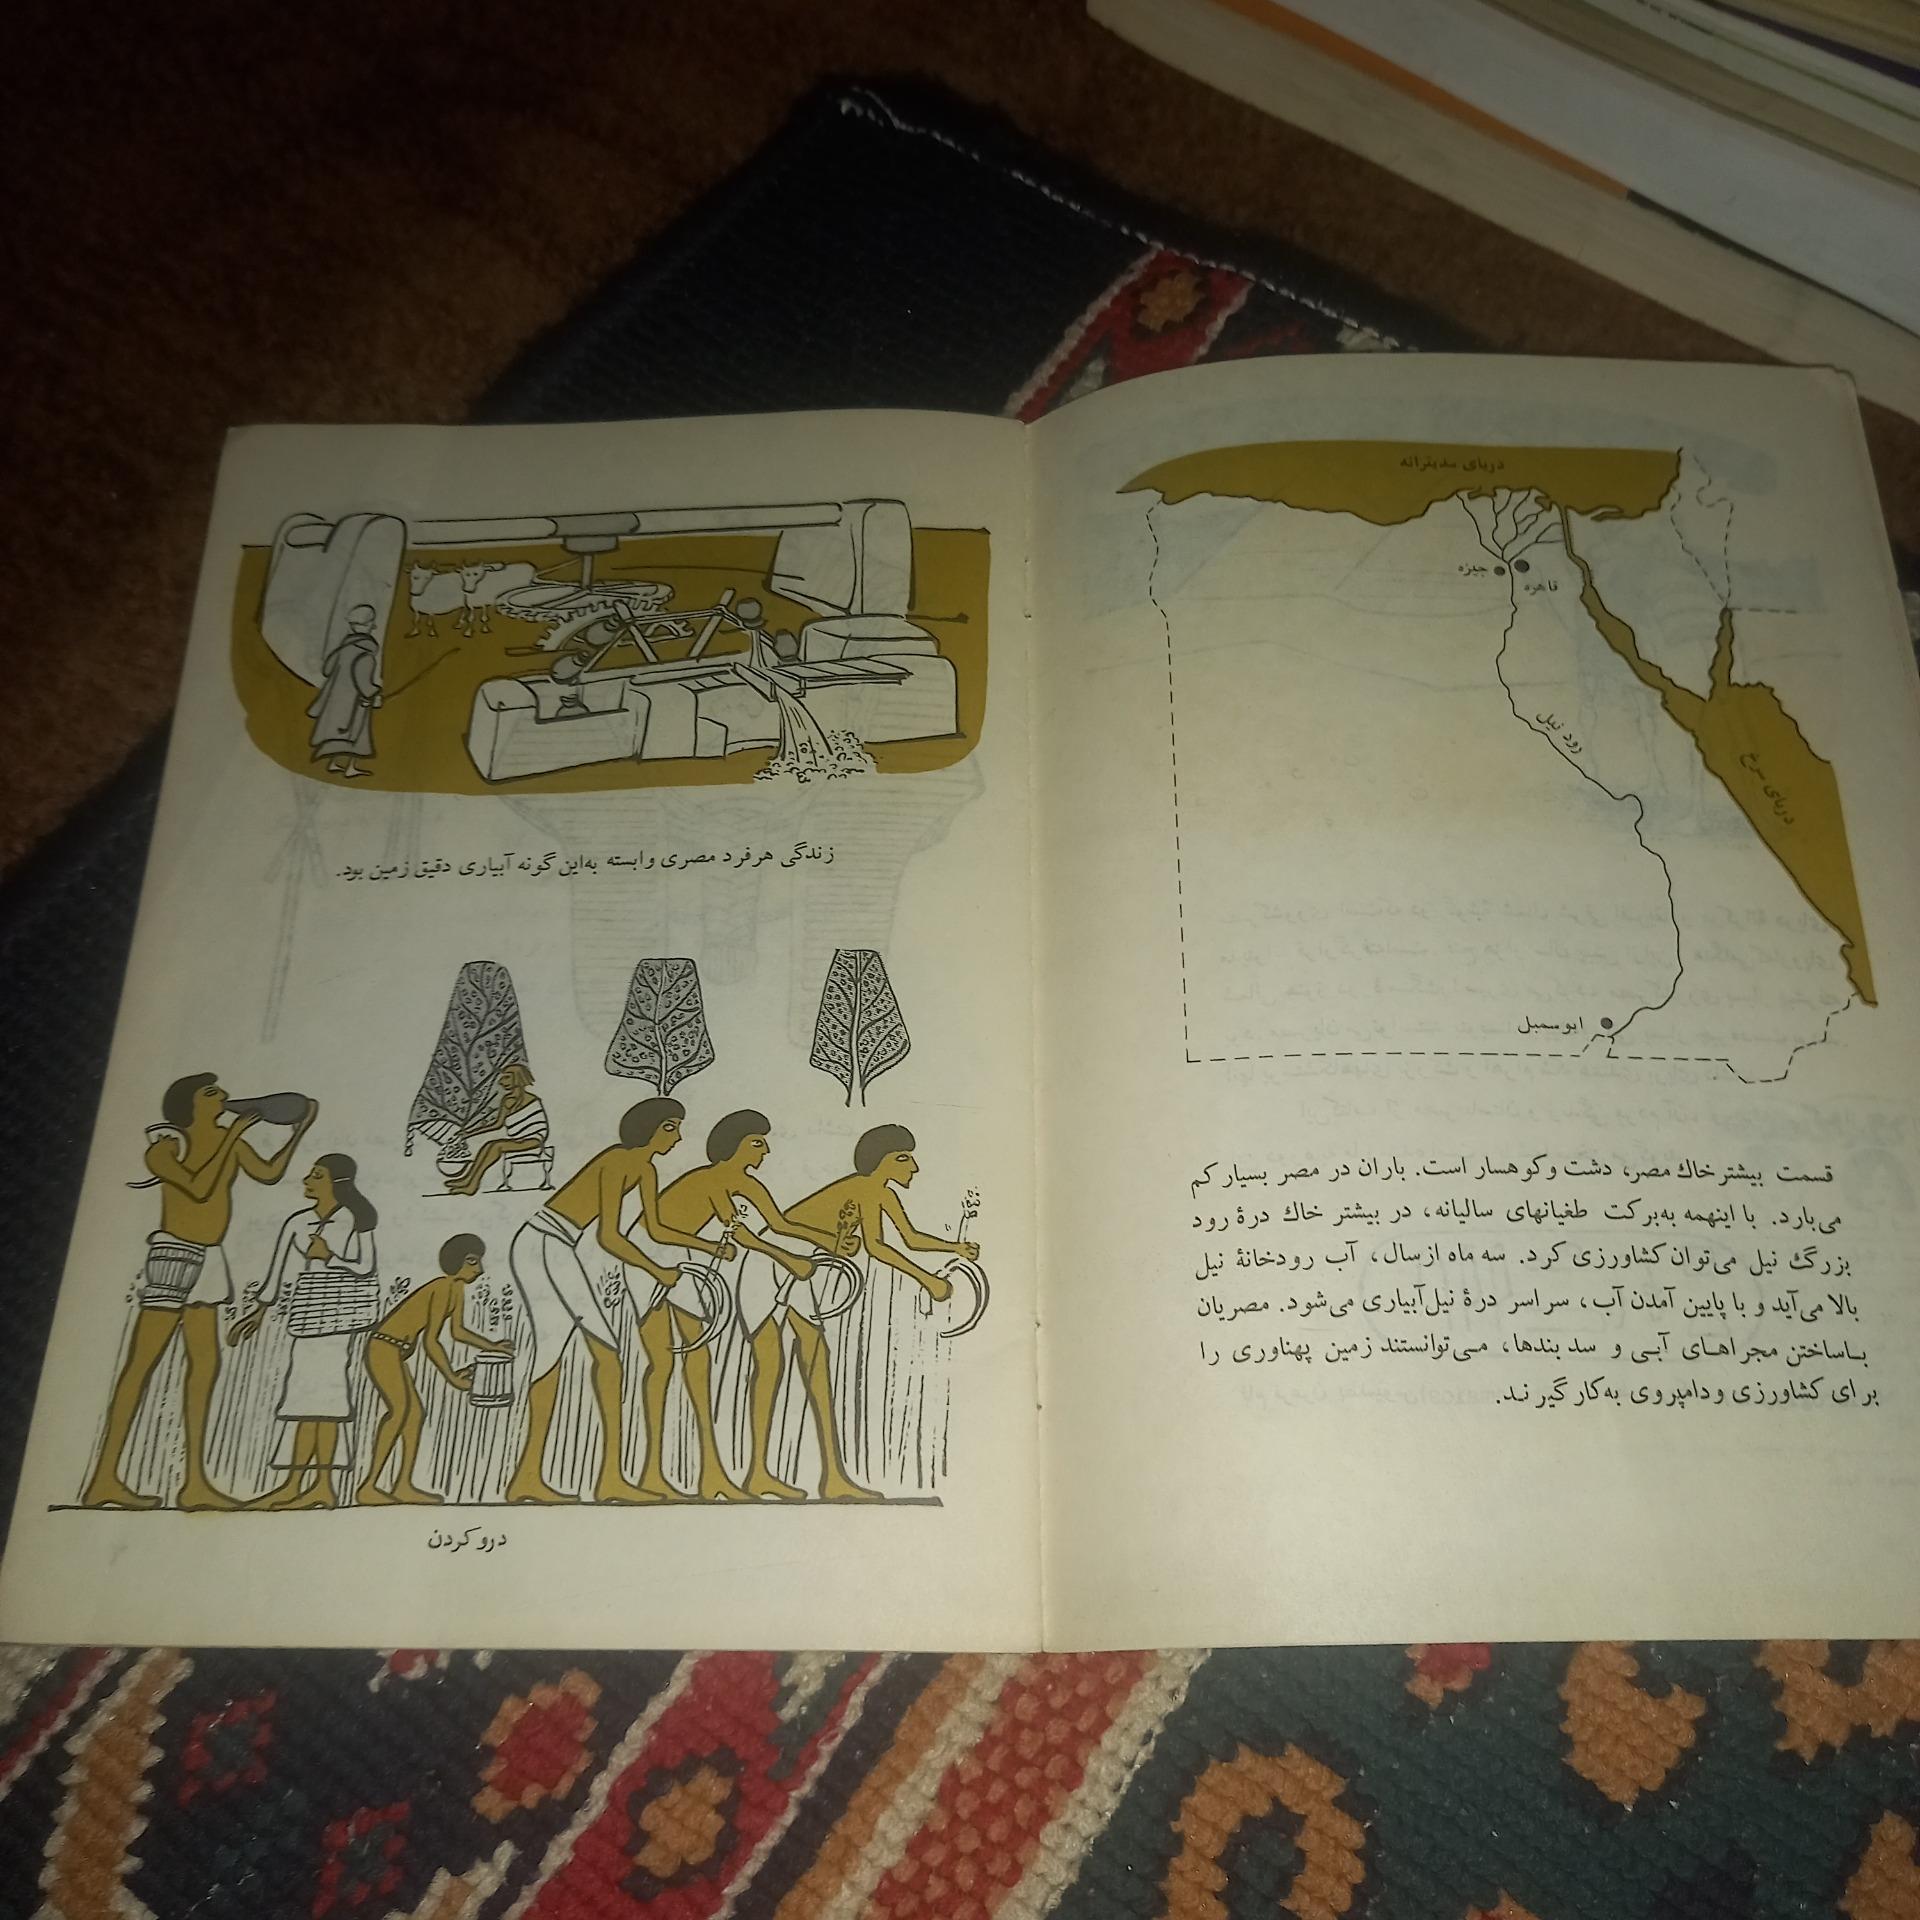 دریای مدیترانه
جیزه
قاهره
رود نیل
دریای سرخ
ابوسمبل
قسمت بیشتر خاك مصر، دشت و كوهسار است. باران در مصر بسیار كم
می‌بارد. با اینهمه به‌بركت طغیانهای سالیانه، در بیشتر خاك درهٔ رود
بزرگ نیل می‌توان كشاورزی كرد. سه ماه ازسال، آب رودخانهٔ نیل
بالا می‌آید و با پایین آمدن آب، سراسر درهٔ نیل‌آبیاری می‌شود. مصریان
باساختن مجراهای آبی و سد بندها، می‌توانستند زمین پهناوری را
برای كشاورزی و دامپروی به‌كار گیرند.
زندگی هرفرد مصری وابسته به‌این گونه آبیاری دقیق زمین بود.
درو كردن